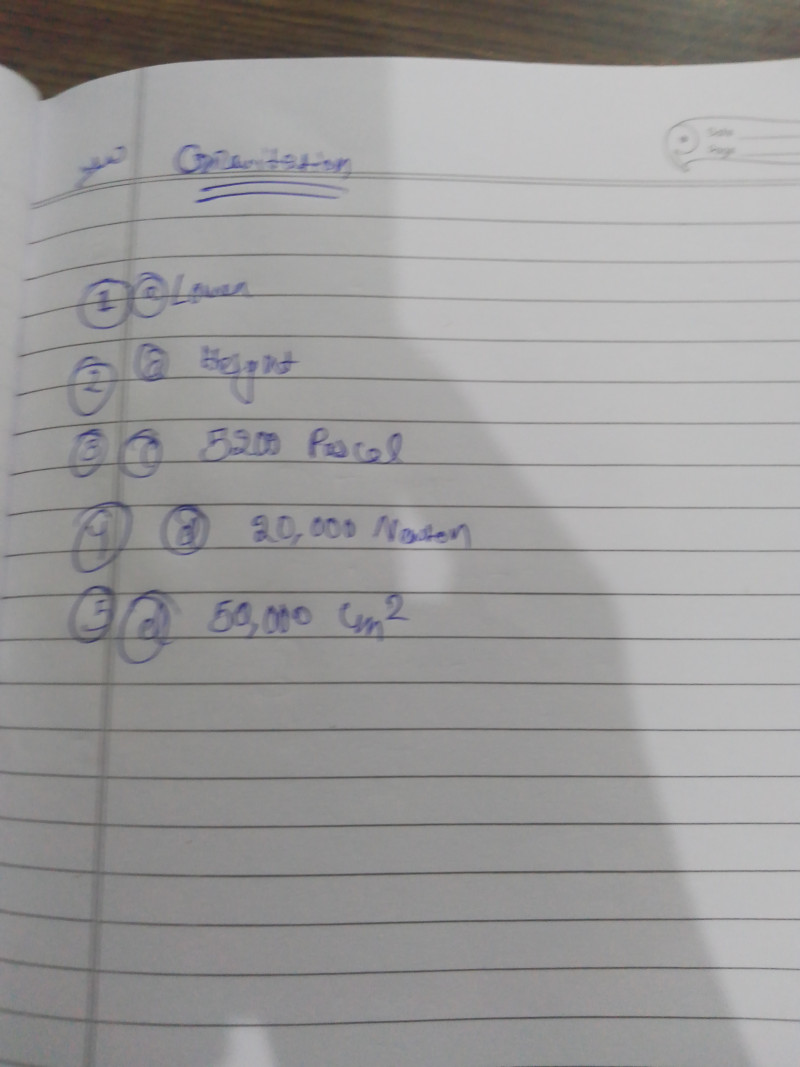 Gravitation
Date
Page
① ⓐ Lower
② ⓐ Height
③ 5200 Pascal
④ ⓓ 20,000 Newton
⑤ ⓓ 50,000 cm²